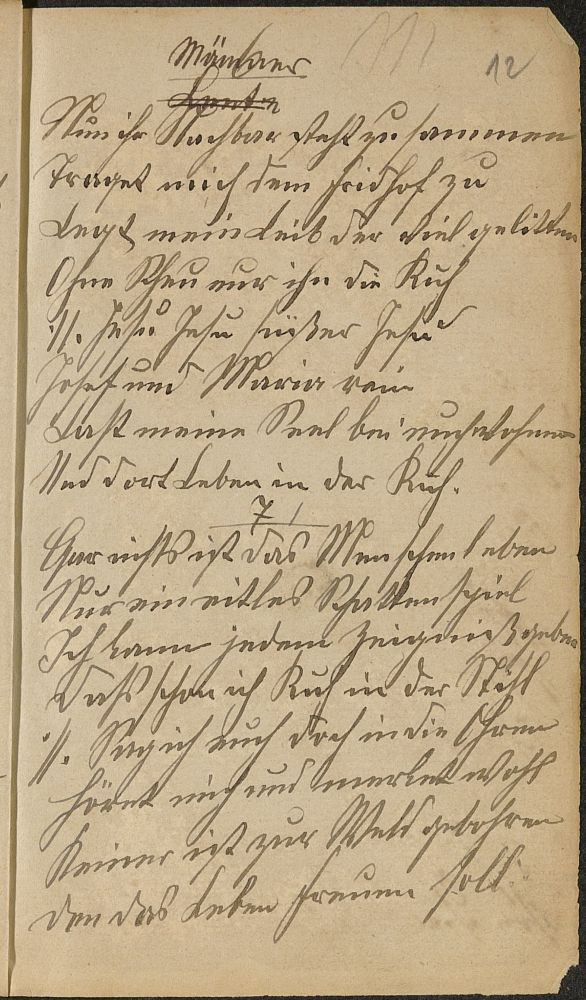 12
Männer
Nun ihr Nachbar steht zusammen
Traget mich dem fridhof zu
Legt mein Leib der viel gelitten
Ohne Scheu nur ihn die Ruh
:/. Jesu Jesu süßer Jesu
Josef und Maria rein
Last meine Seel bei euch wohnen
Und dort Leben in der Ruh.
7
Gar nichts ist das Menschenleben
Nur ein eitles Schattenspiel
Ich kann jedem Zeigniß geben
Dass schon ich Ruh in der Still
:/. Sag ich euch doch in die Ohren
Höret mich und merket wohl
Keiner ist zur Welt gebohren
den das Leben freuen soll